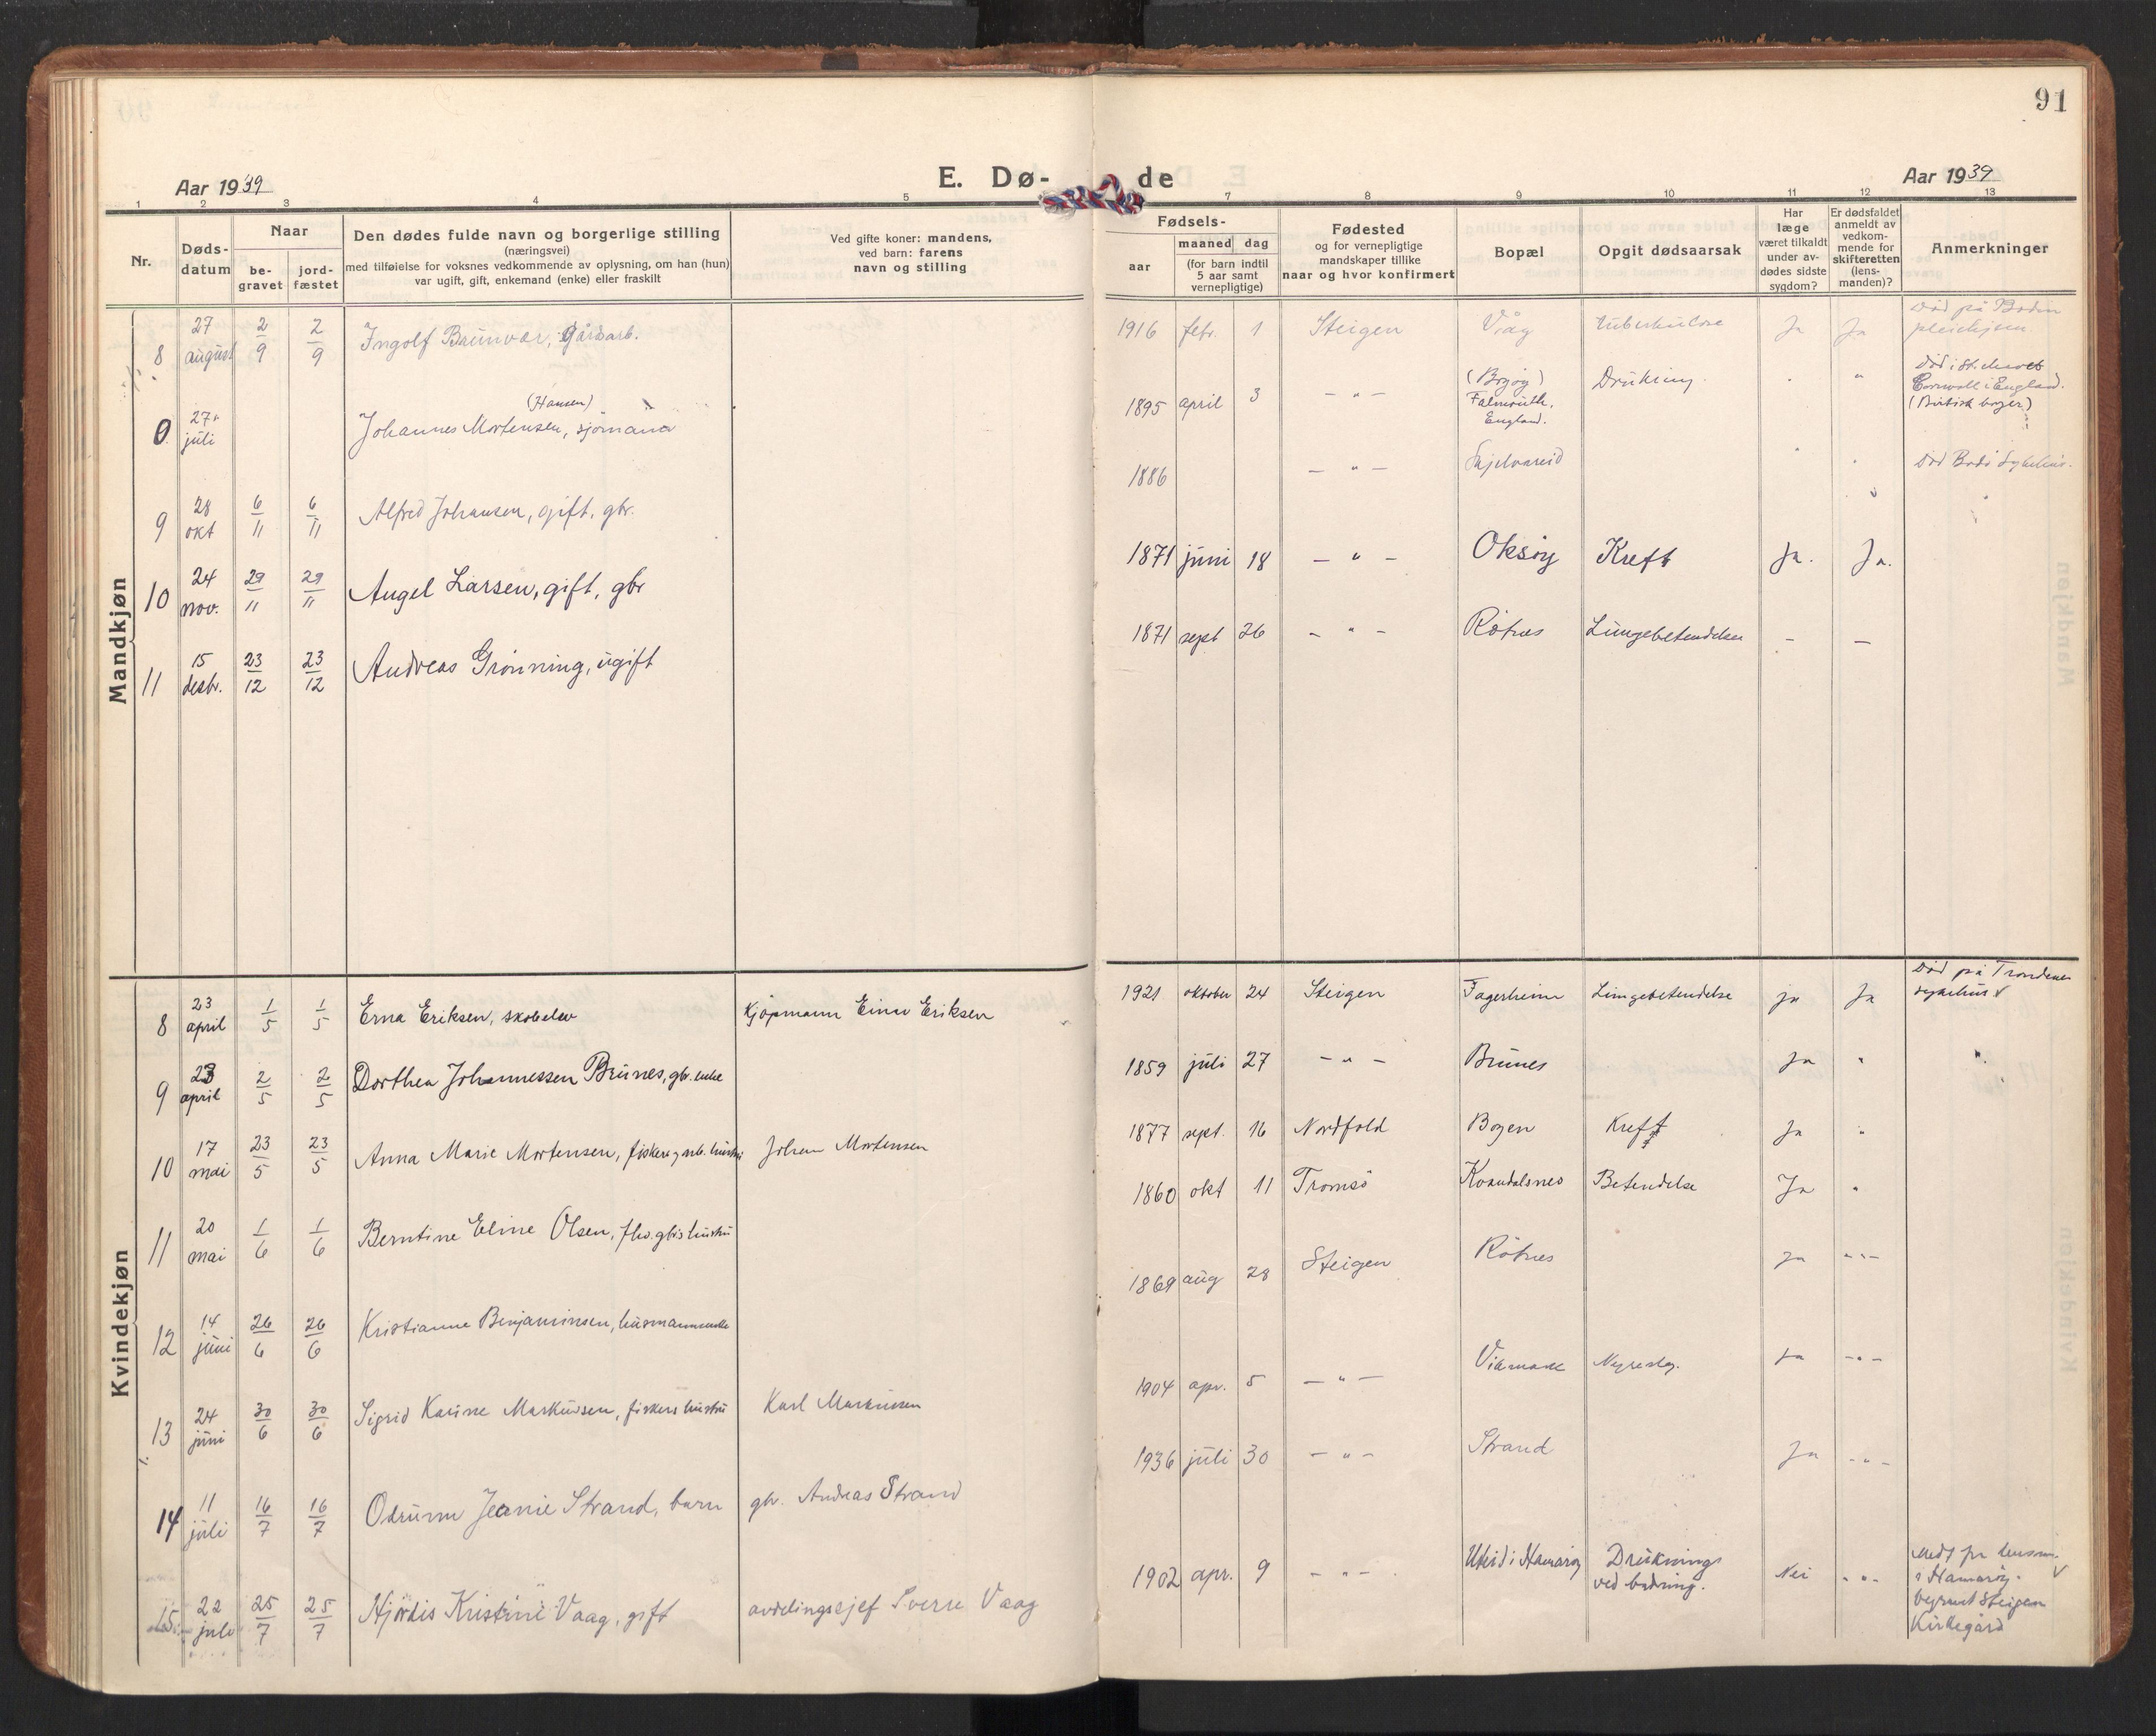 91
Aar 1939
E. Dø-
de
Aar 1939
1 2 3 4 5
7 8 9 10 11 12 13
Nr.
Døds-
datum
Naar
be-
gravet
jord-
fæstet
Den dødes fulde navn og borgerlige stilling
(næringsvei)
med tilføielse for voksnes vedkommende av oplysning, om han (hun)
var ugift, gift, enkemand (enke) eller fraskilt
Ved gifte koner: mandens,
ved barn: farens
navn og stilling
Fødsels-
aar
maaned dag
(for barn indtil
5 aar samt
vernepligtige)
Fødested
og for vernepligtige
mandskaper tillike
naar og hvor konfirmert
Bopæl
Opgit dødsaarsak
Har
læge
været tilkaldt
under av-
dødes sidste
sygdom?
Er dødsfaldet
anmeldt av
vedkom-
mende for
skifteretten
(lens-
manden)?
Anmerkninger
Mandkjøn
8 27 august 2/9 2/9 Ingolf Brunvær, gårdarb. 1916 febr. 1 Steigen Våg tuberkulose Ja Ja Død på Bodin
pleiehjem
0 27 juli (Hansen)
Johannes Mortensen, sjömann 1895 april 3 - " - (Bogøy)
Falmouth,
England. Drukning. " Død i St. Mawes
Cornwall i England.
(Britisk borger)
9 28 okt 6/11 6/11 Alfred Johansen, gift, gbr. 1886 - " - Skjelvareid " " Död Bodö Sykehus.
10 24 nov. 29/11 29/11 Angel Larsen, gift, gbr 1871 juni 18 - " - Oksøy Kreft Ja. Ja.
11 15 desbr. 23/12 23/12 Andreas Grönning, ugift 1871 sept 26 - " - Rötnes Lungebetendelse - -
Kvindekjøn
8 23 april 1/5 1/5 Erna Eriksen, skoleelev Kjøpmann Einar Eriksen 1921 oktober 24 Steigen Fagerheim Lungebetendelse ja Ja Död på Trondenes
sykehus
9 23 april 2/5 2/5 Dorthea Johannessen Brunes, gbr. enke 1859 juli 27 - " - Brunes Ja "
10 17 mai 23/5 23/5 Anna Marie Mortensen, fisker og arb. hustru Johan Mortensen 1877 sept. 16 Nordfold Bogen Kreft Ja "
11 20 mai 1/6 1/6 Berntine Eline Olsen, fhv. gbr's hustru 1860 okt 11 Tromsö Betendelse Ja "
12 14 juni 26/6 26/6 Kristianne Benjaminsen, husmannsenke 1869 aug 28 Steigen Rötnes Ja - " -
13 24 juni 30/6 30/6 Sigrid Karine Markussen, fiskers hustru Karl Markussen 1904 apr. 5 - " - Nyresky. Ja - " -
14 11 juli 16/7 16/7 Odrunn Jeanie Strand, barn gbr. Andreas Strand 1936 juli 30 - " - Strand Ja - " -
15 22 juli 25/7 25/7 Hjördis Kristine Vaag, gift avdelingssjef Sverre Vaag 1902 apr. 9 - " - Uteid i Hamarøy Druknings
ved badning. Nei - " - Meldt for lensm.
i Hamarøy.
begravet Steigen
Kirkegård